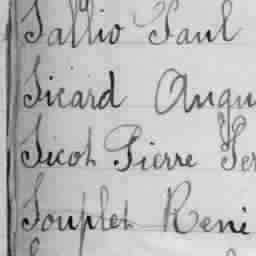 Sallio Paul
Sicard Augu
Sicot Pierre Fer
Souplet René